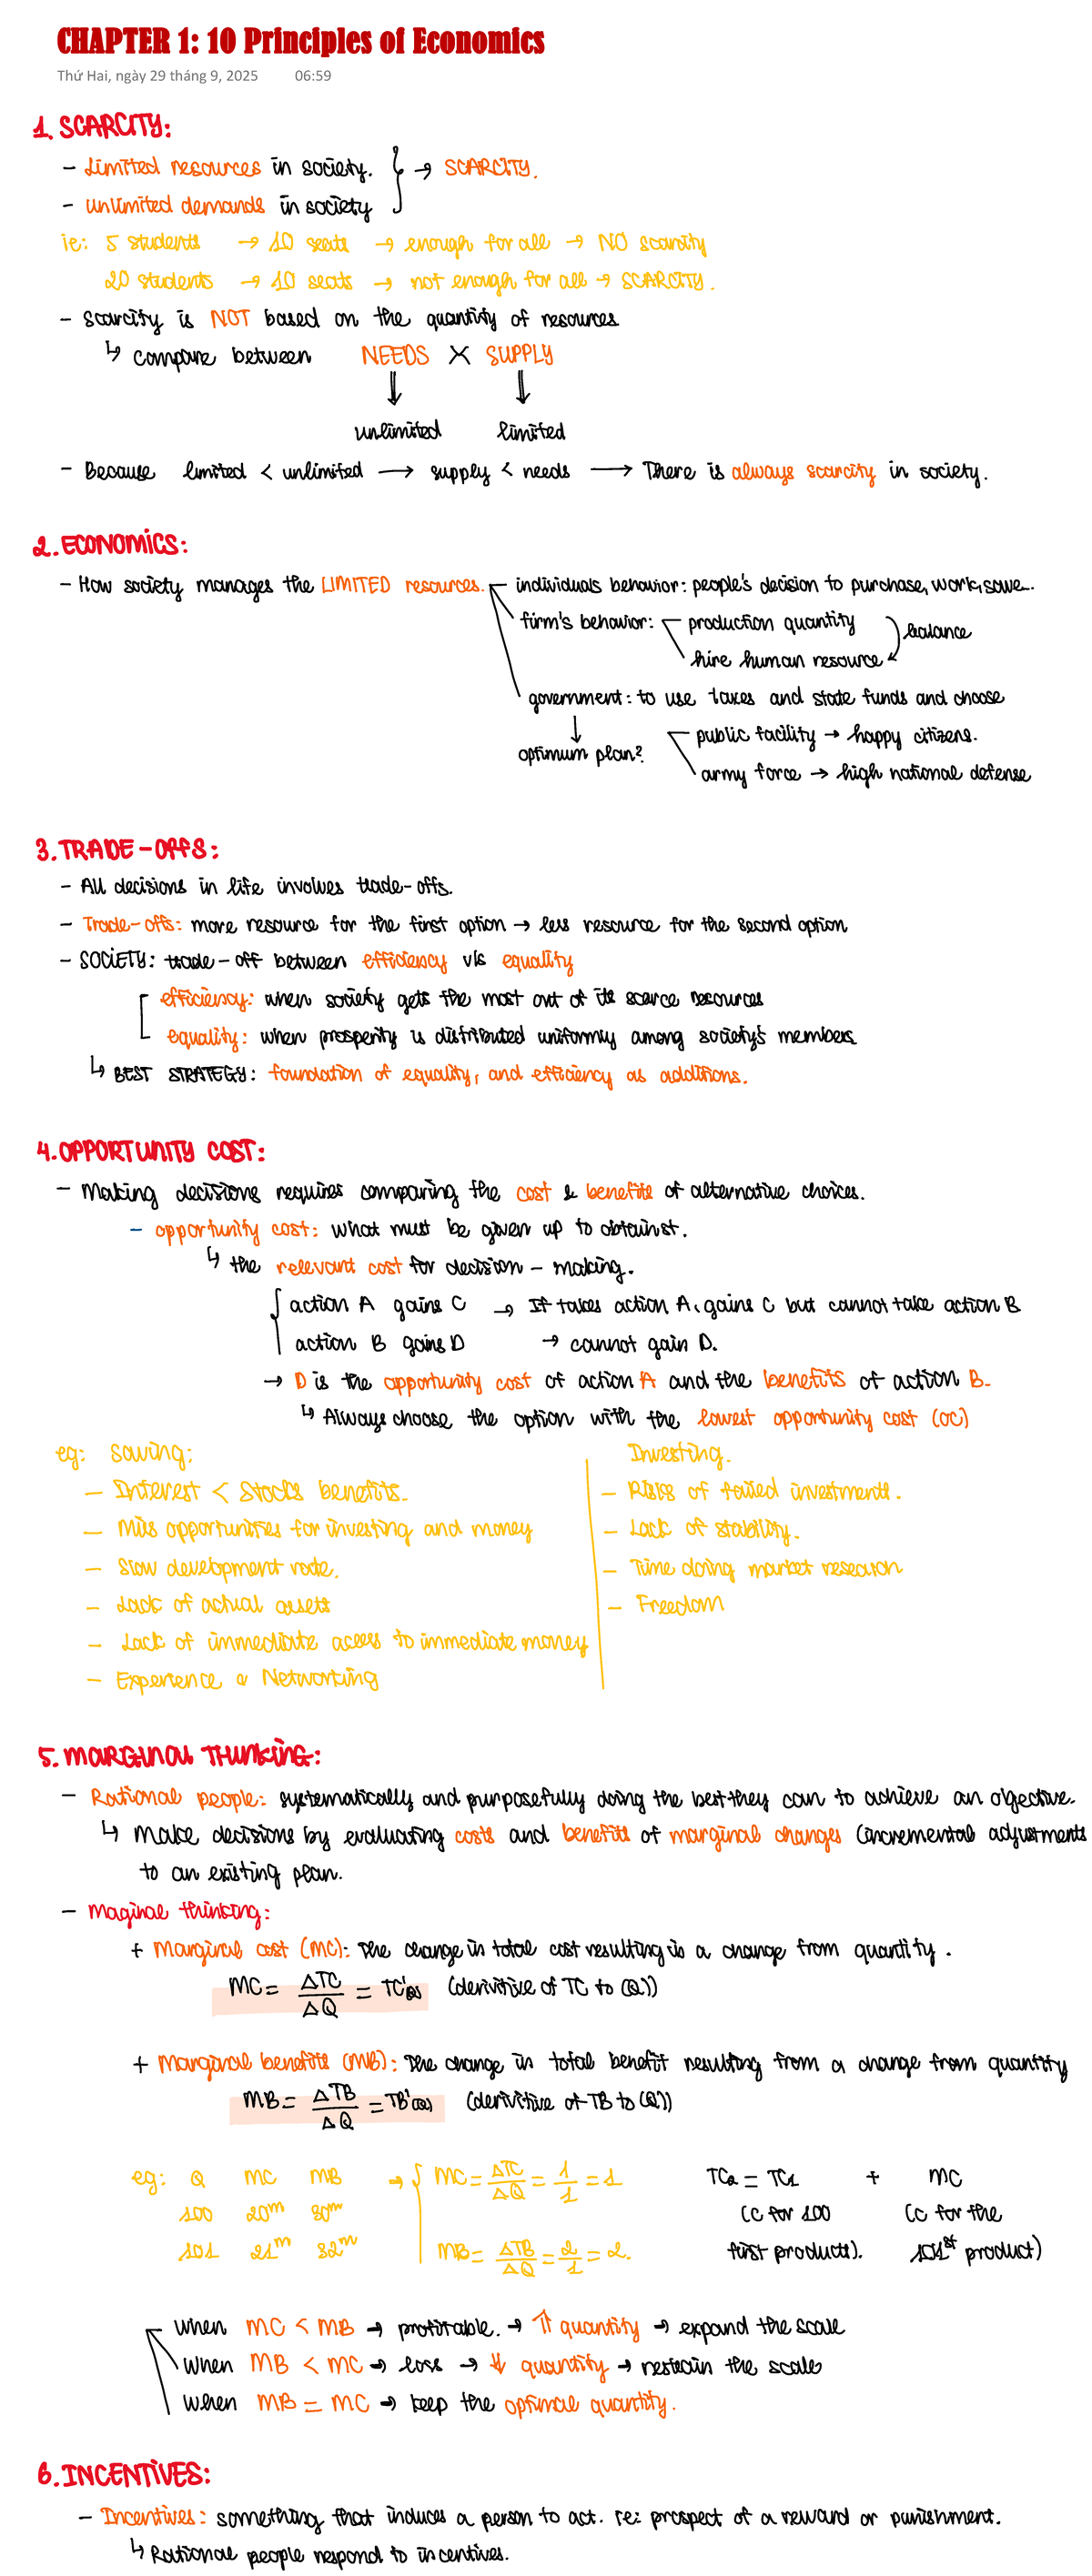 CHAPTER 1: 10 Principles of Economics
Thứ Hai, ngày 29 tháng 9, 2025 06:59
1. SCARCITY:
- Limited resources in society. } → SCARCITY.
- unlimited demands in society
ie: 5 students → 10 seats → enough for all → NO scarcity
20 students → 10 seats → not enough for all → SCARCITY.
- Scarcity is NOT based on the quantity of resources
↳ compare between NEEDS X SUPPLY
unlimited limited
- Because limited < unlimited → supply < needs → There is always scarcity in society.
2. ECONOMICS:
- How society manages the LIMITED resources. individuals behavior: people's decision to purchase, work, save...
firm's behavior: production quantity
balance
hire human resource
government: to use taxes and state funds and choose
public facility → happy citizens.
optimum plan?
army force → high national defense
3. TRADE-OFFS:
- All decisions in life involves trade-offs.
- Trade-offs: more resource for the first option → less resource for the second option
- SOCIETY: trade-off between efficiency v/s equality
efficiency: when society gets the most out of its scarce resources
equality: when prosperity is distributed uniformly among society's members
↳ BEST STRATEGY: foundation of equality, and efficiency as additions.
4. OPPORTUNITY COST:
- Making decisions requires comparing the cost & benefits of alternative choices.
- opportunity cost: what must be given up to obtainst.
↳ the relevant cost for decision - making.
action A gains C → If takes action A, gains C but cannot take action B
action B gains D → cannot gain D.
→ D is the opportunity cost of action A and the benefits of action B.
↳ Always choose the option with the lowest opportunity cost (OC)
eg: Saving: Investing.
- Interest < Stocks benefits. - Risks of failed investments.
- Miss opportunities for investing and money - Lack of stability.
- Slow development rate. - Time doing market research
- Lack of actual assets - Freedom
- Lack of immediate acess to immediate money
- Experience & Networking
5. MARGINAL THINKING:
- Rational people: systematically and purposefully doing the best they can to achieve an objective.
↳ Make decisions by evaluating costs and benefits of marginal changes (incremental adjustments
to an existing plan.
- Maginal thinking:
+ Marginal cost (MC): The change in total cost resulting is a change from quantity.
MC = ΔTC/ΔQ = TC'(Q) (derivitive of TC to (Q))
+ Marginal benefits (MB): The change in total benefit resulting from a change from quantity
MB = ΔTB/ΔQ = TB'(Q) (derivitive of TB to (Q))
eg: Q MC MB → { MC = ΔTC/ΔQ = 1/1 = 1 TC2 = TC1 + MC
100 20m 30m (C for 100 (C for the
101 21m 32m MB = ΔTB/ΔQ = 2/1 = 2. first products). 101st product)
when MC < MB → profitable. → ⇑ quantity → expand the scale
when MB < MC → loss → ⇓ quantity → restrain the scale
when MB = MC → keep the optimal quantity.
6. INCENTIVES:
- Incentives: something that induces a person to act. ie: prospect of a reward or punishment.
↳ Rational people respond to incentives.